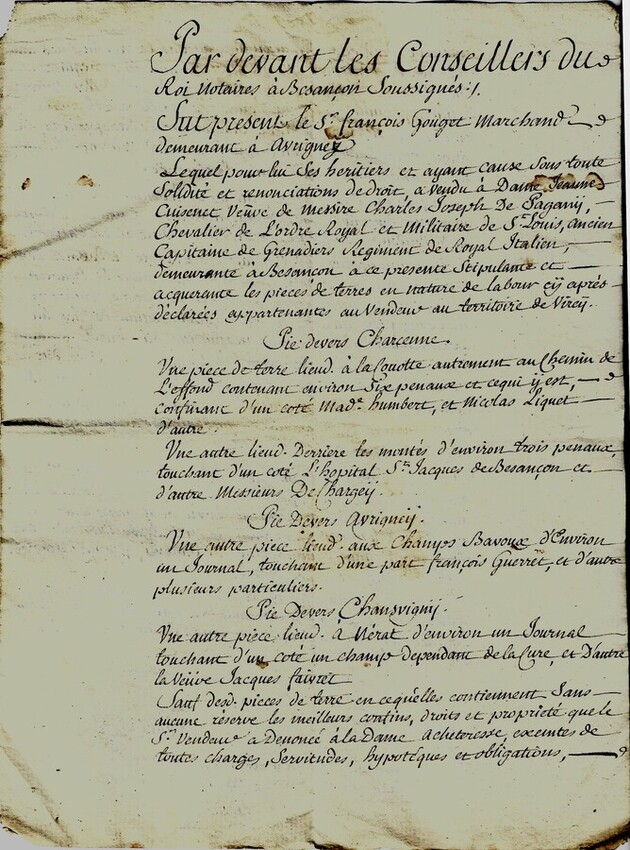 Par devant les Conseillers du
Roi Notaires à Besançon Soussignés :/.
Fut present le Sr. françois Gouget Marchand
demeurant à Avrigney
Lequel pour lui Ses heritiers et ayant cause Sous toute
Solidité et renonciations de droit, a vendu à Dame Jeanne
Cuisenet, Veûve de Messire Charles Joseph De Paganij,
Chevalier de L'ordre Royal et Militaire de St. Louis, ancien
Capitaine de Grenadiers Regiment de Royal Italien,
demeurante à Besançon à ce presente Stipulante et
acquerante les pieces de terres en nature de labour cij après
déclarées appartenantes au Vendeur au territoire de Vireij.
Pie devers Charcenne.
Une piece de terre lieud. à la Couotte autrement au Chemin de
L'effond contenant environ Six penaux et ce qui y est,
confinant d'un coté Made. humbert, et Nicolas Liquet
d'autre.
Une autre lieud. Derriere les montés d'environ trois penaux,
touchant d'un coté L'hopital St. Jacques de Besançon et
d'autre Messieurs De Chargeij.
Pie Devers Avrigneij.
Une autre piece lieud. aux Champs Bavoux d'Environ
un Journal, touchant d'une part françois Guerret, et d'autre
plusieurs particuliers.
Pie Devers Chansvignij.
Une autre pièce lieud. à Nérat d'environ un Journal
touchant d'un coté un champ dependant de la Cure, et D'autre
la Veûve Jacques faivret
Sauf desd. pieces de terre en ce qu'elles contiennent Sans
aucune reserve les meilleurs confins, droits et propriété que le
Sr. Vendeur a Denoncé à la Dame Acheteresse, exemtes de
toutes charges, Servitudes, hypotéques et obligations,